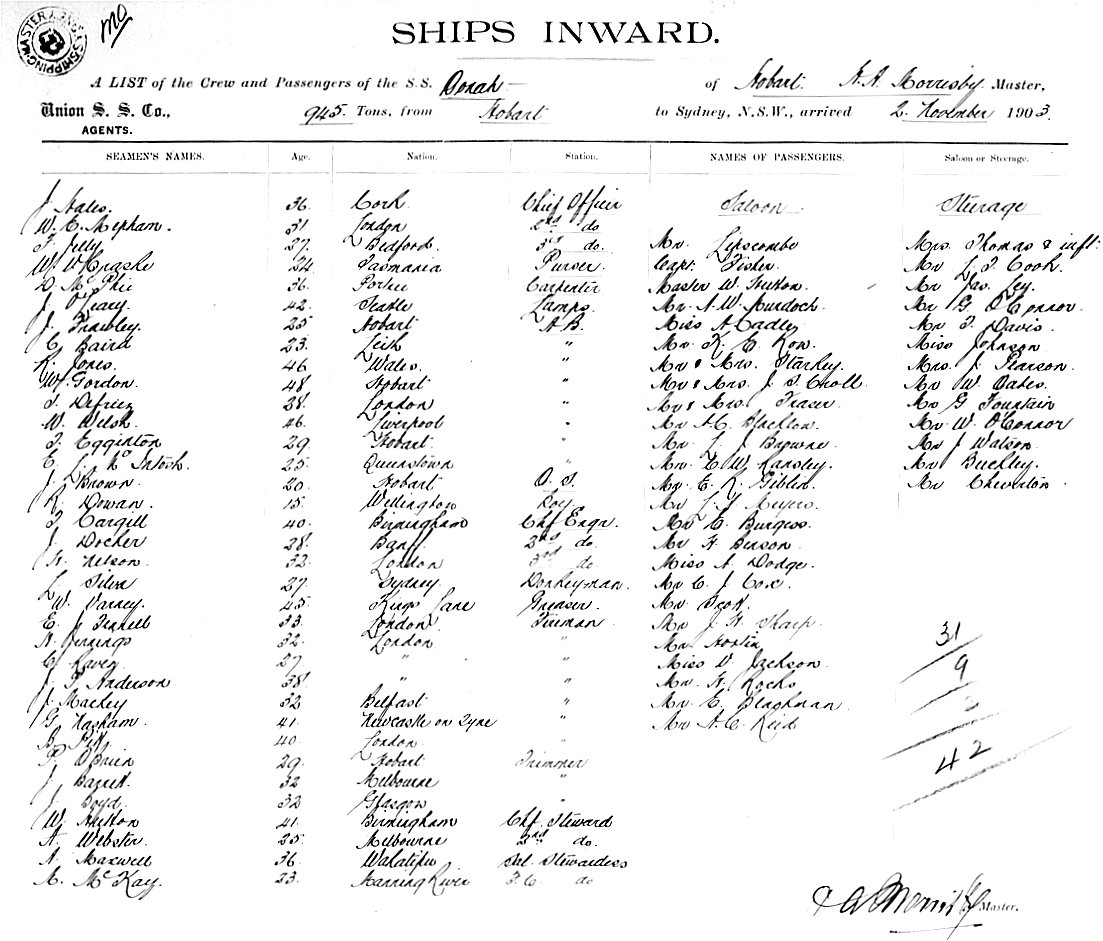 SHIPPING MASTER SYDNEY
SHIPS INWARD.
A LIST of the Crew and Passengers of the S.S. Oonah of Hobart A. A. Morrisby Master,
Union S. S. Co., 945 Tons, from Hobart to Sydney, N.S.W., arrived 2 November 1903.
AGENTS.
SEAMEN'S NAMES. Age. Nation. Station. NAMES OF PASSENGERS. Saloon or Steerage.
J. Hales. 36 Cork Chief Officer Saloon Steerage
W. E. Mepham. 31 London 2nd do
F. Jelly 27 Bedford. 3rd do. Mr. Lipscombe Mrs. Thomas & inft:
W. V. 24 Tasmania Purser. Capt. Fisher Mr L. T. Cook.
D. McPhie 36. Carpenter Master W. Hutton. Mr Jas. Ley.
J. O'Leary. 42. Lamps. Mr. A. W. Murdoch. Mr G. O'Connor
J. Frawley. 25 Hobart A B. Miss A Cadley Mr T. Davis.
C. Baird 23. Leith " Mr. F. E. Kon. Miss Johnson
R. Jones. 46 Wales. " Mr & Mrs. Starkey. Mrs. J. Pearson.
W. Gordon. 48 Hobart " Mr & Mrs. J. S. Croll. Mr W. Oates.
T. Defriez 28. London " Mr & Mrs. Fraser. Mr G Fountain
W. Welsh. 46. Liverpool " Mr A. C. Blacklow Mr. W. O'Connor
T. Egginton 29. Hobart " Mr. L. J. Browne. Mr J Watson.
E. L. McIntosh. 25. Queenstown " Mr. C. W. Hansley. Mr Buckley.
J. Brown. 20 Hobart O. S. Mr. E. R. Giblin. Mr Cheverton.
R. Dowan. 15. Wellington Boy. Mr L. Meyers.
T. Cargill 40. Birmingham Chf Engr. Mr C. Burgess.
J. Docher 28. Banff 2nd do. Mr H. Benson.
H. Nelson. 32. London 3rd do Miss A. Dodge.
L. Silva 27. Sydney Donkeyman. Mr C. J. Cox.
W. Varney. 45. Greaser. Mr Scott.
E. J. 33. London Fireman Mr J. H. Sharp.
H. Jennings 32. London " Mr
C. 27 " " Miss V. Jackson.
J. F. Anderson 38 " " Mr. H.
J. Mackey 32 Belfast " Mr. E.
G. 41. Newcastle on Tyne " Mr A. C. Reid
B. 40. London "
P. O'Brien 29. Hobart Trimmer
J. Barrett. 32 Melbourne "
J. Boyd. 32 Glasgow "
W. Hutton 41. Birmingham Chf. Steward
A. Webster. 25. Melbourne 2nd do.
A. Maxwell 36. Wakatipu Sal. Stewardess
M. McKay. 23. Manning River F. C. do
31
9
2
42
Master.